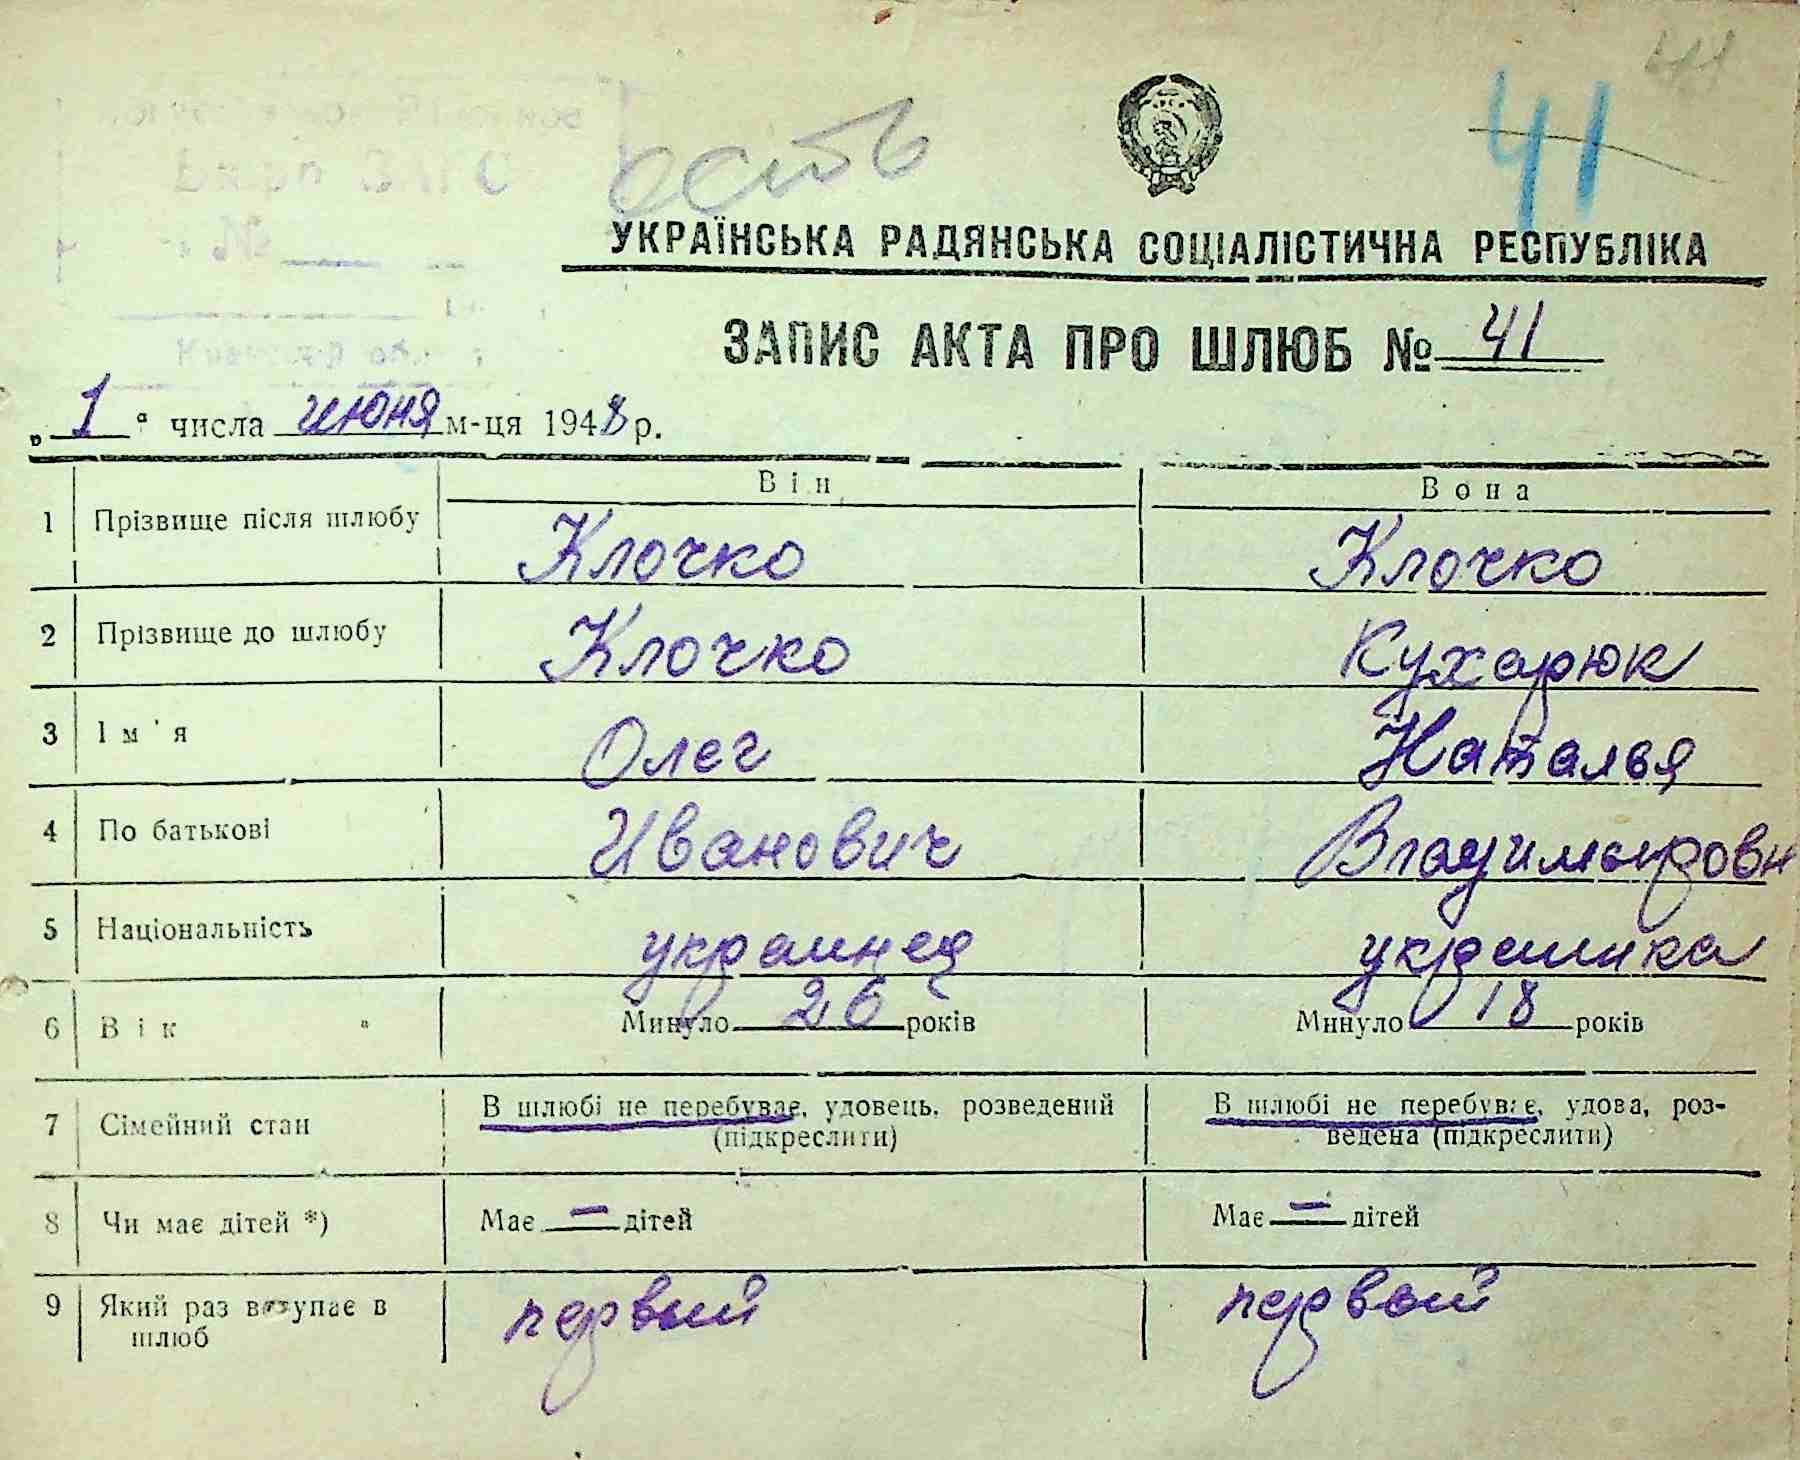 41
41
есть
УКРАЇНСЬКА РАДЯНСЬКА СОЦІАЛІСТИЧНА РЕСПУБЛІКА
ЗАПИС АКТА ПРО ШЛЮБ № 41
„1“ числа июня м-ця 1948 р.
Він Вона
1 Прізвище після шлюбу Клочко Клочко
2 Прізвище до шлюбу Клочко Кухарюк
3 Ім'я Олег Наталья
4 По батькові Иванович Владимировн
5 Національність украинец украинка
6 Вік Минуло 26 років Минуло 18 років
7 Сімейний стан В шлюбі не перебуває, удовець, розведений (підкреслити) В шлюбі не перебуває, удова, роз-
ведена (підкреслити)
8 Чи має дітей *) Має — дітей Має — дітей
9 Який раз вступає в шлюб первый первый